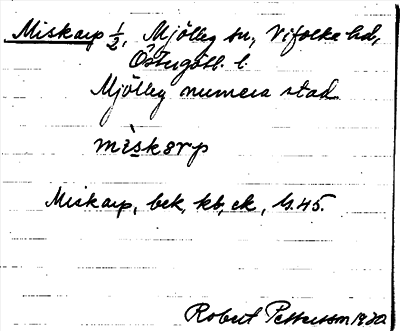 Miskarp ½, Mjölby sn, Vifolka hd,
Östergötl. l.
Mjölby numera stad
mìskarp
Miskarp, bek, kb, ek, 4.45.
Robert Pettersson 1920